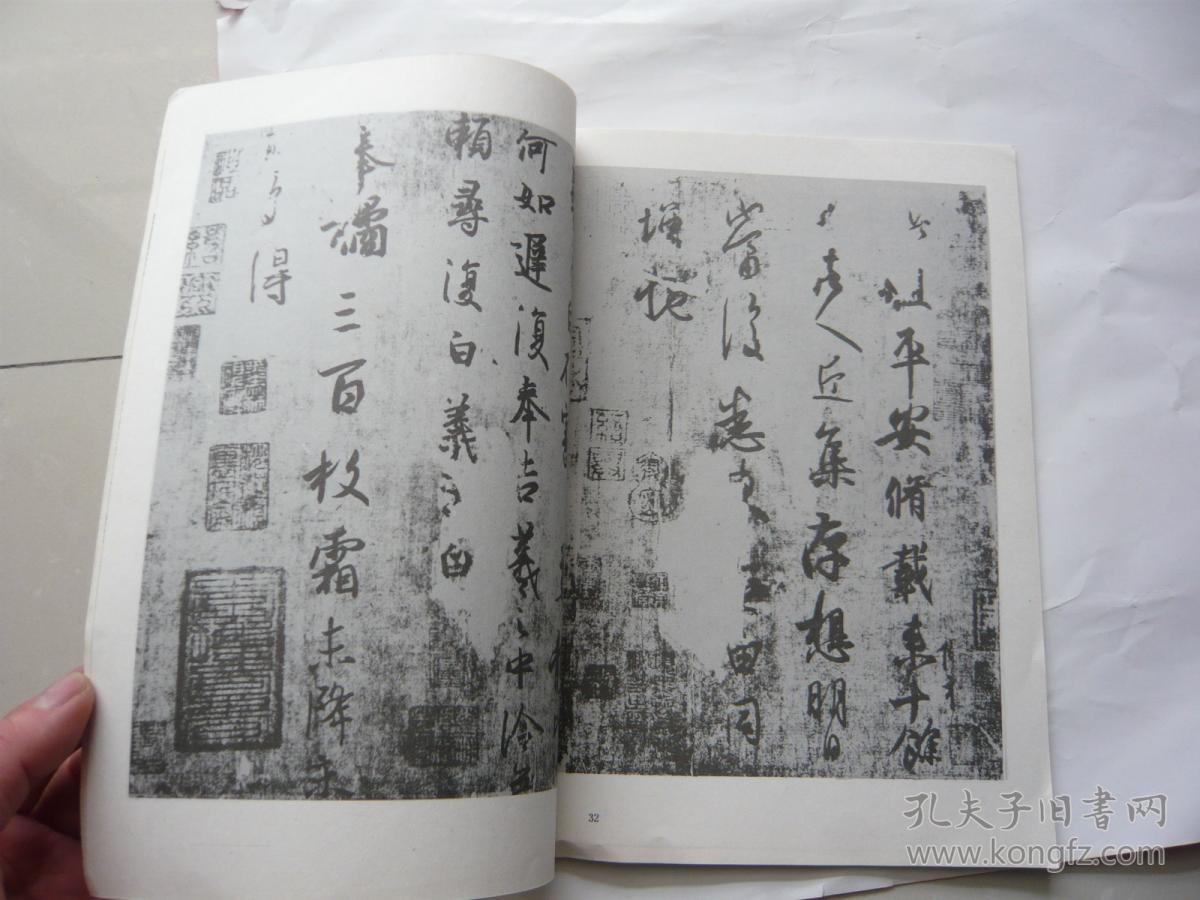 此粗平安脩載來十餘
日諸人近集存想明日
當復悉來無由同
增慨
何如遲復奉告羲之中冷無
賴尋復白羲之白
奉橘三百枚霜未降未
可多得
32
孔夫子旧書网
www.kongfz.com